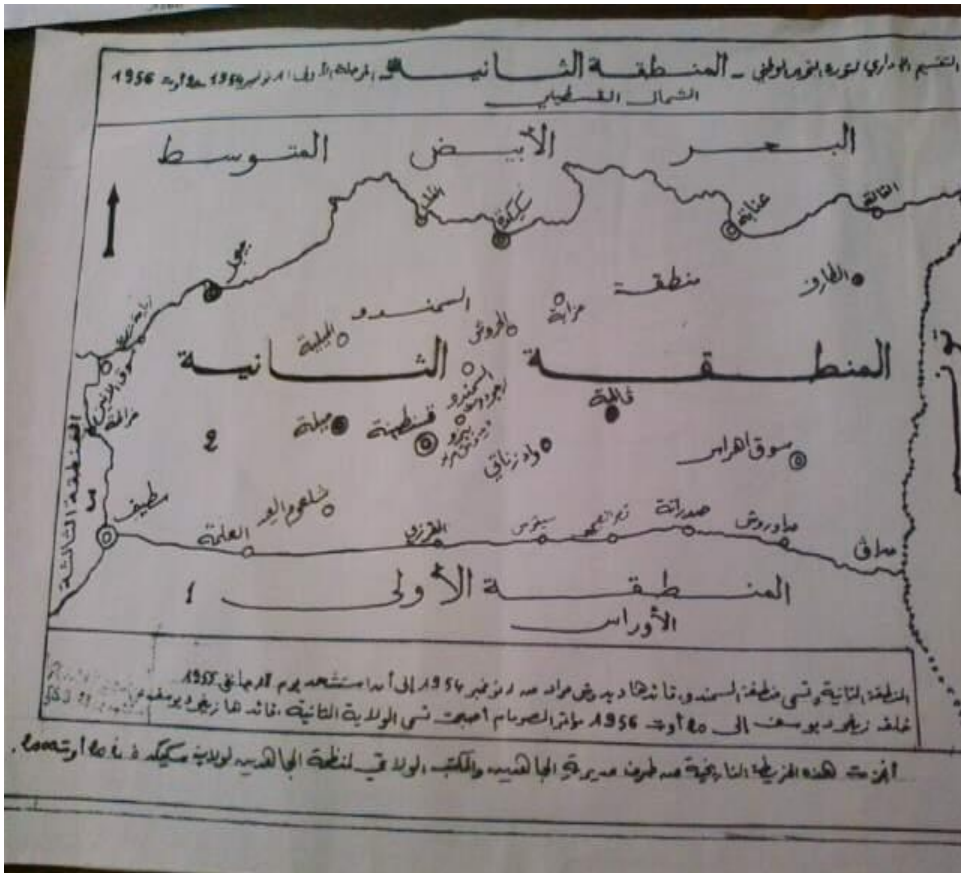 التقسيم الإداري لثورة أول نوفمبر الوطني - المنطقة الثانية - المرحلة الأولى 1 نوفمبر 1954 20 أوت 1956
الشمال القسنطيني
البحر الأبيض المتوسط
القالة
عنابة
سكيكدة
القل
جيجل
زيامة
الطارف
منطقة السمندو
عزابة
الحروش
الميلية
المنطقة الثانية
سوق الاثنين
خراطة
السمندو
زيغود
قالمة
ميلة
قسنطينة
2
واد زناتي
سوق اهراس
المنطقة الثالثة
3
سطيف
شلغوم العيد
العلمة
سيقوس
صدراتة
مداوروش
المنطقة الأولى 1
الأوراس
تونس
المنطقة الثانية، وتسمى منطقة السمندو، قائدها ديدوش مراد من 1 نوفمبر 1954 إلى أن استشهد يوم 18 جانفي 1955
خلفه زيغود يوسف إلى 20 أوت 1956 مؤتمر الصومام أصبحت تسمى الولاية الثانية، قائدها زيغود يوسف
أنجزت هذه الخريطة التاريخية من طرف مديرية المجاهدين والمكتب الولائي لمنظمة المجاهدين لولاية سكيكدة في 20 أوت 2000.